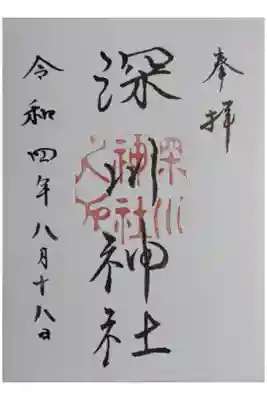 奉拝
深川神社
深川神社之印
令和四年八月十八日